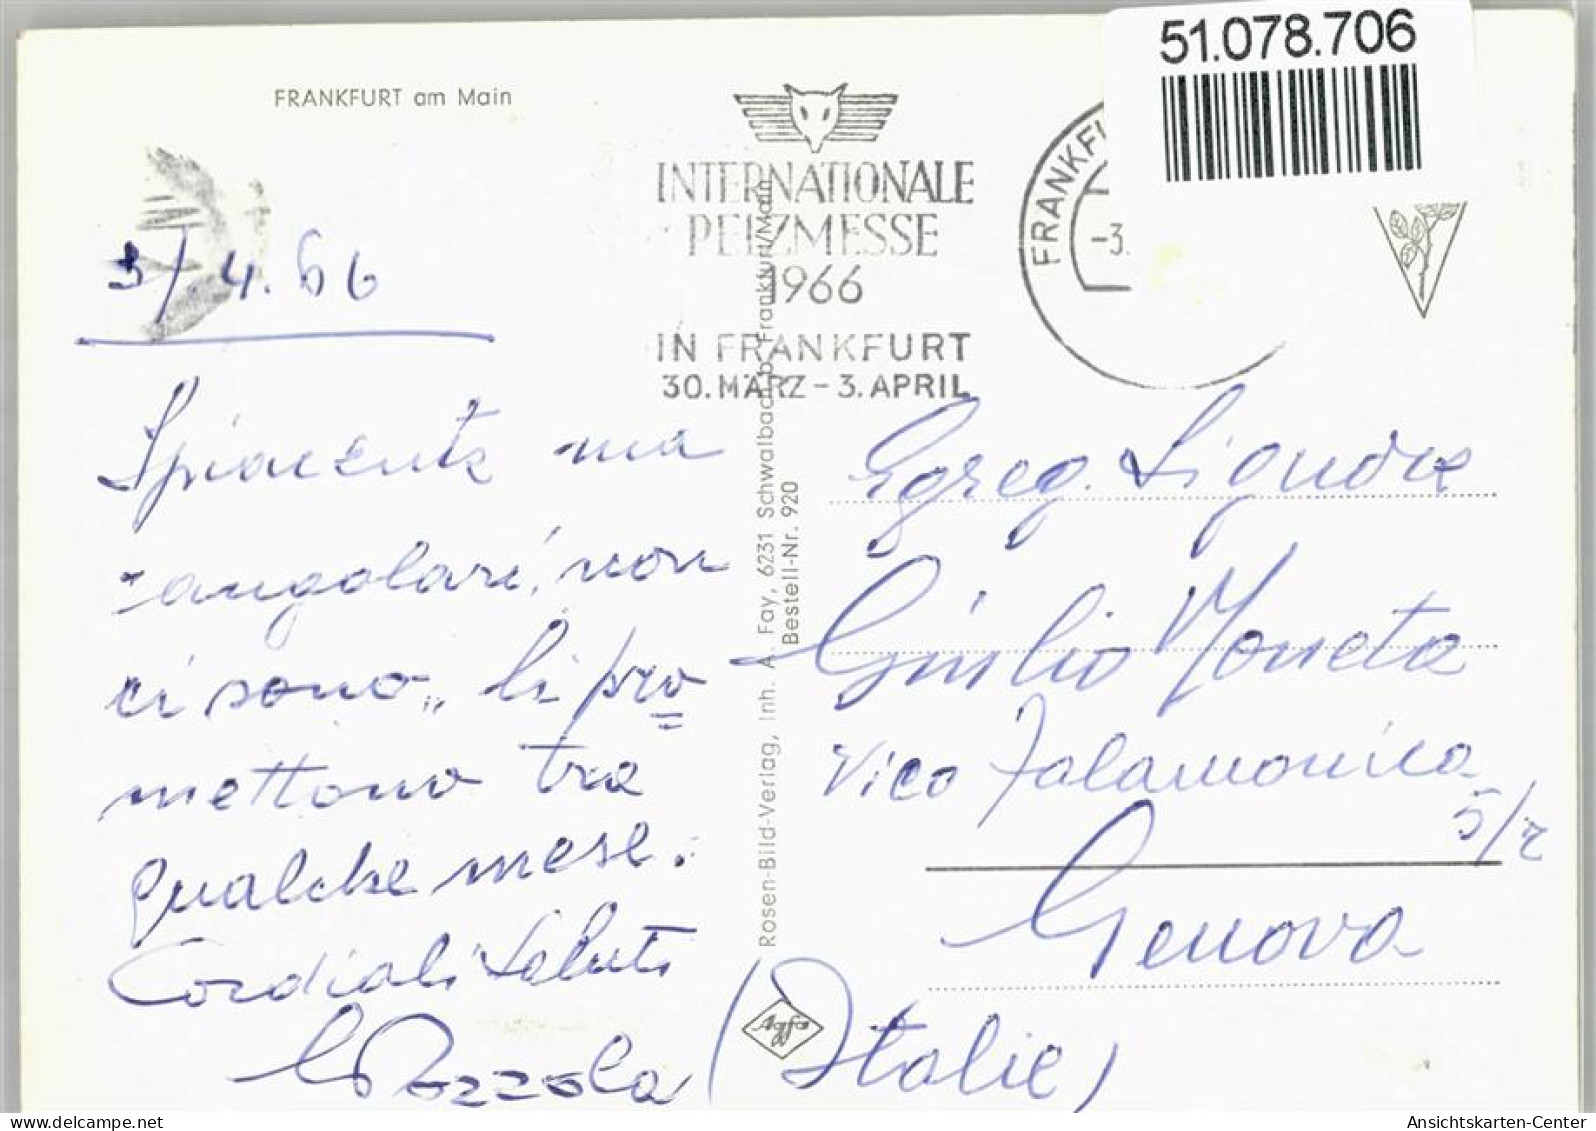 51.078.706
FRANKFURT am Main
INTERNATIONALE
PELZMESSE
1966
IN FRANKFURT
30. MÄRZ - 3. APRIL
FRANKFU
-3.
3/.4.66
Spiacente ma
angolari, non
ci sono,, li pro
mettono tra
qualche mese.
Cordiali Saluti
Pozzola
Rosen-Bild-Verlag, Inh. A. Fay, 6231 Schwalbach b. Frankfurt/Main
Bestell-Nr. 920
Egreg. Signore
Giulio Moneta
Vico Falamonica
5/2
Genova
(Italie)
Agfa
delcampe.net
Ansichtskarten-Center